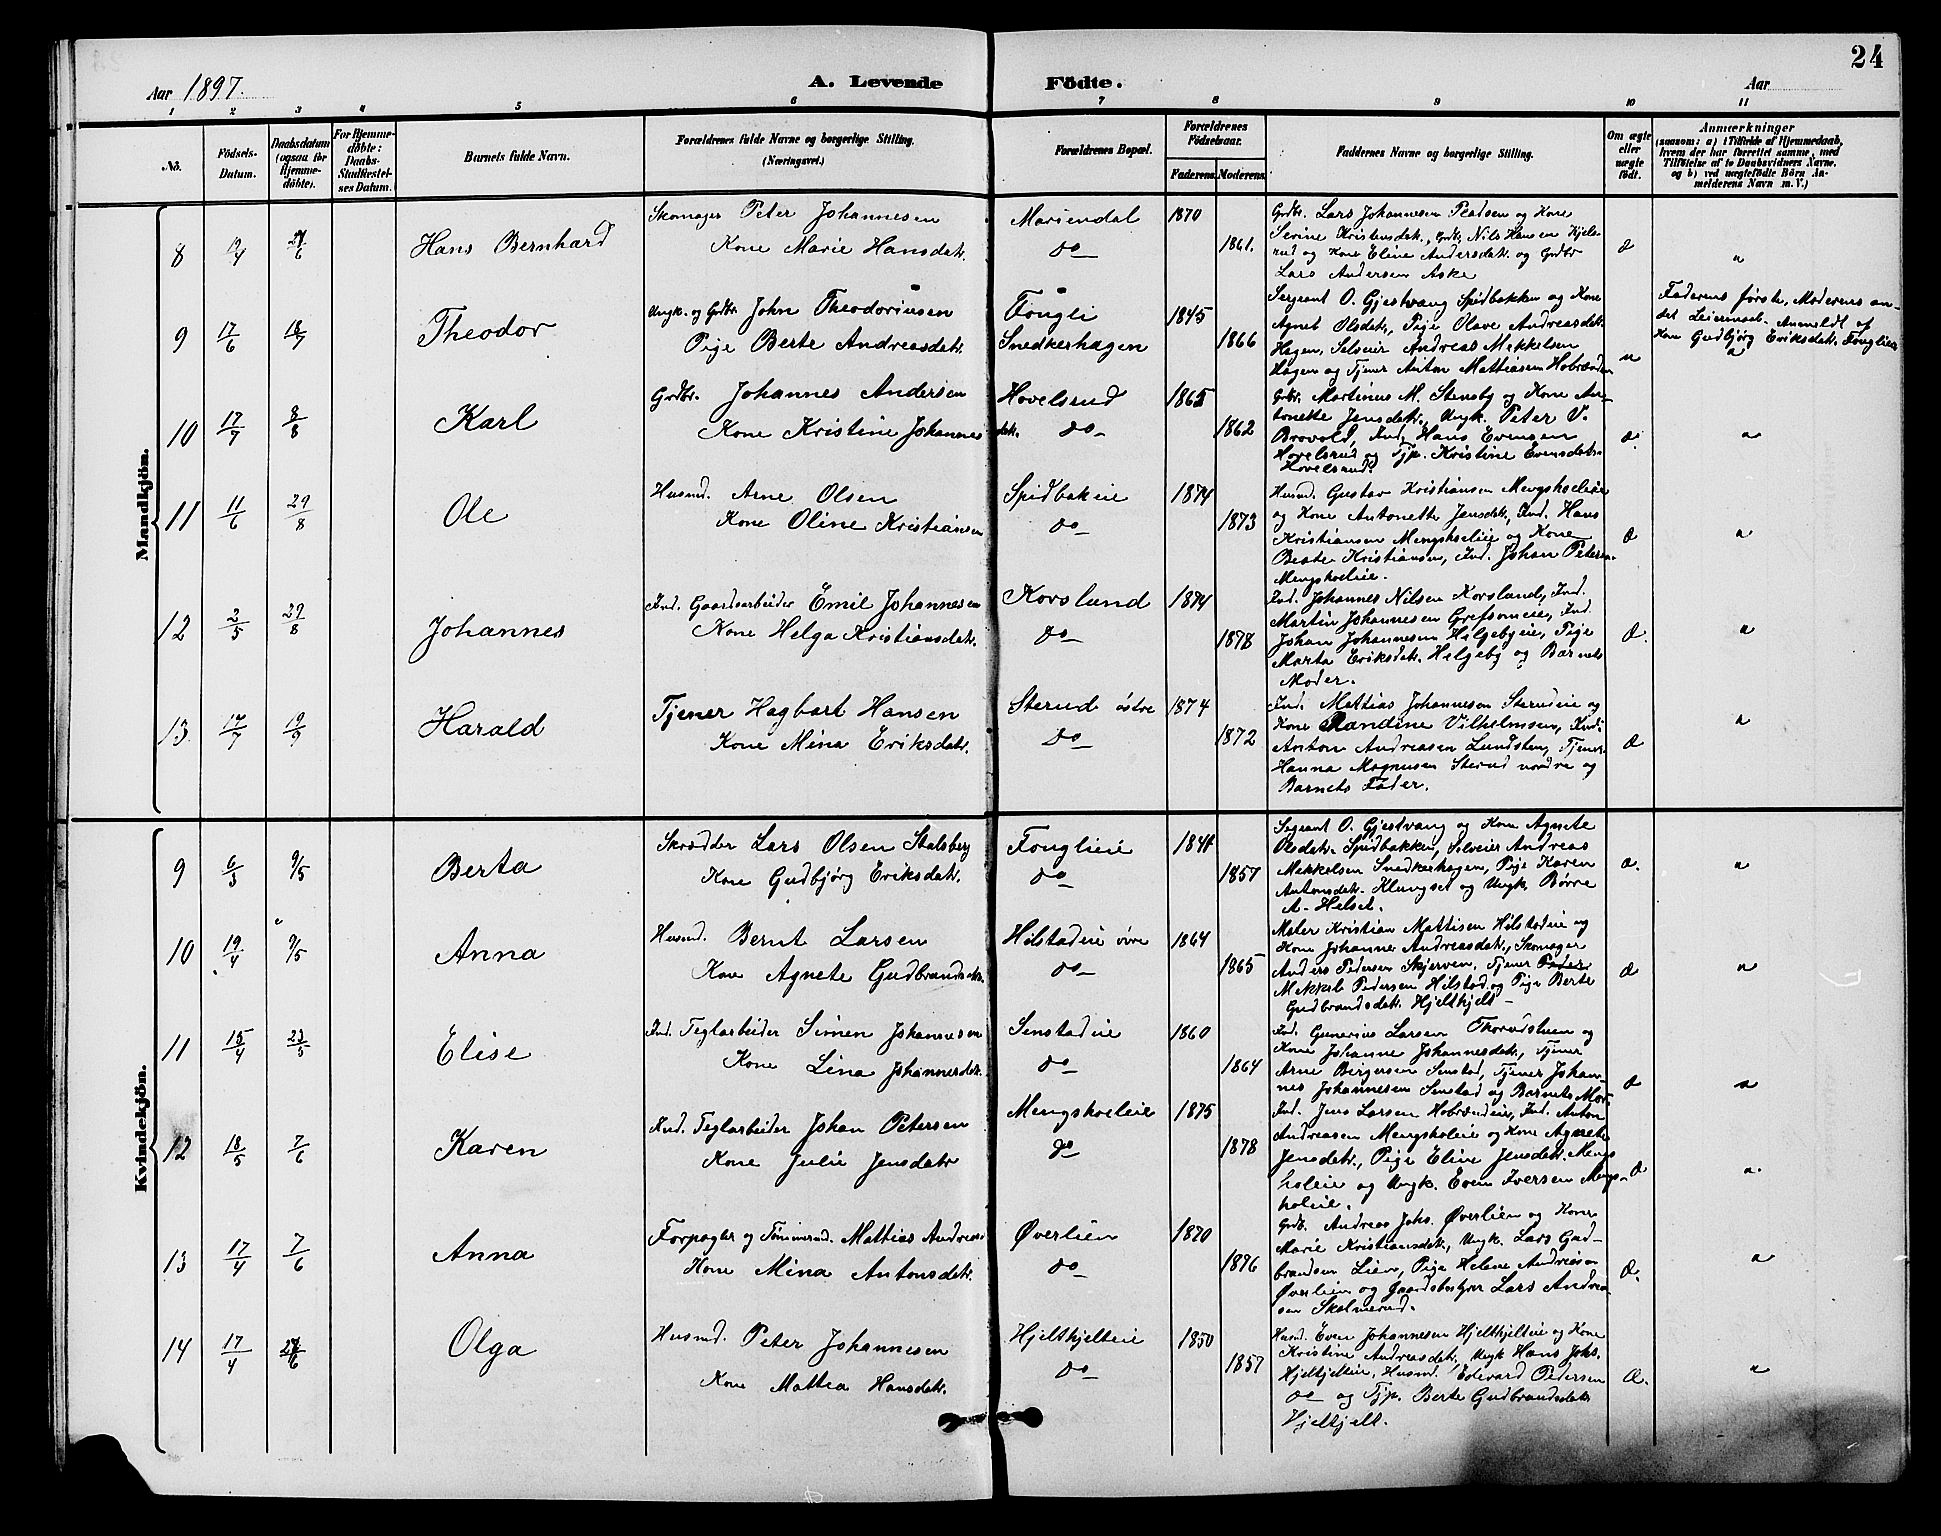 24
Aar 1897. A. Levende Födte. Aar
1 2 3 4 5 6 7 8 9 10 11
No.
Födsels-Datum.
Daabsdatum (ogsaa for Hjemmedöbte).
For Hjemmedöbte: Daabs-Stadfæstelses Datum.
Barnets fulde Navn.
Forældrenes fulde Navne og borgerlige Stilling. (Næringsvei.)
Forældrenes Bopæl.
Forældrenes Födselsaar.
Faderens. Moderens.
Faddernes Navne og borgerlige Stilling.
Om ægte eller uægte födt.
Anmærkninger
(saasom: a) i Tilfælde af Hjemmedaab,
hvem der har forrettet samme, med
Tilföielse af to Daabsvidners Navne,
og b) ved uægtefödte Börn An-
melderens Navn m. V.)
Mandkjön.
8 Hans Bernhard
Skomager Peter Johannesen
Kone Marie Hansdatr.
Mariendal
do
1870
1861.
Grdbr. Lars Johannesen og Kone
Serine Kristensdatr., Grdb. Nils Hansen Kjels-
rud og Kone Eline Andersdatr. og Grdbr
Lars Andersen Aske
9 17/6 18/7 Theodor
Ungk. og Grdbr. John Theodoriusen
Pige Berte Andreasdatr.
Fougli
Snedkerhagen
1845
1866
Sergeant O. Gjestvang Spidbakken og Kone
Agnet Olsdatr., Pige Olave Andreasdatr.
Hagen, Selveier Andreas Mekkelsen
Hagen og Tjener Anton Mattiasen
u
Faderens første, Moderens an-
det Leiermaal. Anmeldt af
Kone Gudbjørg Eriksdatr. Fouglieie
10 17/7 8/8 Karl
Grdbr. Johannes Andersen
Kone Kristine Johannesdatr.
Hovelsrud
do
1865
1862
Grbr. Martinus M. Stensby og Kone An-
tonette Jensdatr., Ungk. Peter V.
Brovold, Ind. Hans Evensen
Hovelsrud og Tjp. Kristine Evensdatr.
Hovelsrud.
11 11/6 29/8 Ole
Husmd. Arne Olsen
Kone Oline Kristiansen
Spidbakeie
do
1874
1873
Husmd. Gustav Kristiansen Mengsholeie
og Kone Antonette Jensdatr., Ind. Hans
Kristiansen Mengsholeie og Kone
Beate Kristiansen, Ind. Johan Petersen
Mengsholeie.
12 2/5 29/8 Johannes
Ind. Gaardsarbeider Emil Johannesen
Kone Helga Kristiansdatr.
Korslund
do
1874
1878
Ind. Johannes Nilsen Korslund, Ind.
Martin Johannesen Grefsomeie, Ind.
Johan Johannesen Hilgebyeie, Pige
Marta Eriksdatr. Helgeby og Barnets
Moder.
13 17/7 19/9 Harald
Tjener Hagbart Hansen
Kone Mina Eriksdatr.
Sterud østre
do
1874
1872
Ind. Mattias Johannesen Sterudeie og
Kone Randine Vilhelmsen, Ind.
Anton Andreasen Lundsten, Tjener
Hanna Magnusen Sterud nordre og
Barnets Fader.
Kvindekjön.
9 6/3 9/5 Berta
Skrædder Lars Olsen Stalsberg
Kone Gudbjörg Eriksdatr.
Fouglieie
do
1857
Sergeant O. Gjestvang og Kone Agnete
Olsdatr. Spidbakken, Selveier Andreas
Mekkelsen Snedkerhagen, Pige Karen
Antonsdatr. Klungset og Ungk. Børre
A. Helset.
10 19/4 9/5 Anna
Husmd. Bernt Larsen
Kone Agnete Gudbrandsdatr.
Hilstadeie øvre
do
1864
1865
Maler Kristian Mattisen Hilstadeie og
Kone Johanne Andreasdatr., Skomager
Anders Pedersen Skjerven, Tjener Peder
Mekkel Pedersen Hilstad og Pige Berte
Gudbrandsdatr. Hjelthjelt
11 15/4 23/5 Elise
Ind. Teglarbeider Simen Johannesen
Kone Lina Johannesdatr.
Senstadeie
do
1860
1864
Ind. Gunerius Larsen og
Kone Johanne Johannesdatr., Tjener
Arne Bergersen Senstad, Tjener Johan-
nes Johannesen Senstad og Barnets Mor.
12 18/5 7/6 Karen
Ind. Teglarbeider Johan Petersen
Kone Julie Jensdatr
Mengsholeie
do
1875
1878
Ind. Jens Larsen Hobrændeie, Ind. Anton
Andreasen Mengsholeie og Kone Agnete
Jensdatr., Pige Eline Jensdatr. Mengs
holeie og Ungk. Even Iversen Mengs-
holeie.
13 17/4 7/6 Anna
Forpagter og Tømmermd. Mattias Andreasen
Kone Mina Antonsdatr.
Øverlien
do
1870
1876
Grdb. Andreas Johs. Øverlien og Kone
Marie Kristiansdatr., Ungk. Lars Gud-
brandsen Lien, Pige Helene Andreasen
Øverlien og Gaardsbestyrer Lars Andrea
sen Skolmerud.
14 17/4 Olga
Husmd. Peter Johannesen
Kone Mattea Hansdatr.
Hjelthjelteie
do
1850
1857
Husmd. Even Johannesen Hjelthjelteie og Kone
Kristine Andreasdatr., Ungk Hans Johs.
Hjelthjelteie, Husmd. Edevard Pedersen
do og Tjp. Berte Gudbrandsdatr.
Hjeltjelt.